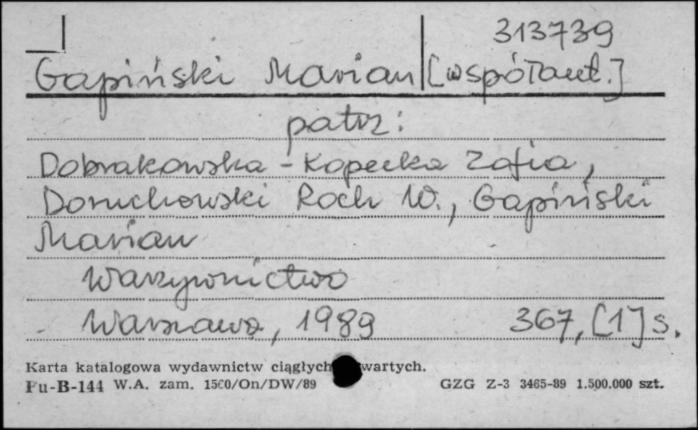 313739
Gapiński Marian [współaut.]
patrz:
Dobrakowska-Kopecka Zofia,
Doruchowski Roch W., Gapiński
Marian
Warzywnictwo
Warszawa, 1989 367, [1] s.
Karta katalogowa wydawnictw ciągłych wartych.
Pu-B-144 W.A. zam. 1500/On/DW/89 GZG Z-3 3465-89 1.500.000 szt.